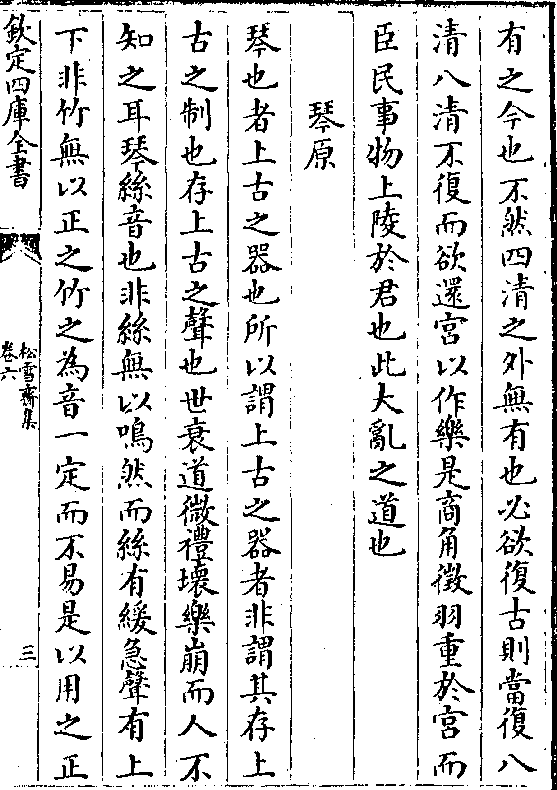 有之今也不然四清之外無有也必欲復古則當復八
清八清不復而欲還宮以作樂是商角徵羽重於宮而
臣民事物上陵於君也此大亂之道也
琴原
琴也者上古之器也所以謂上古之器者非謂其存上
古之制也存上古之聲也世衰道微禮壞樂崩而人不
知之耳琴絲音也非絲無以鳴然而絲有緩急聲有上
下非竹無以正之竹之為音一定而不易是以用之正
欽定四庫全書
松雪齋集
卷六
三